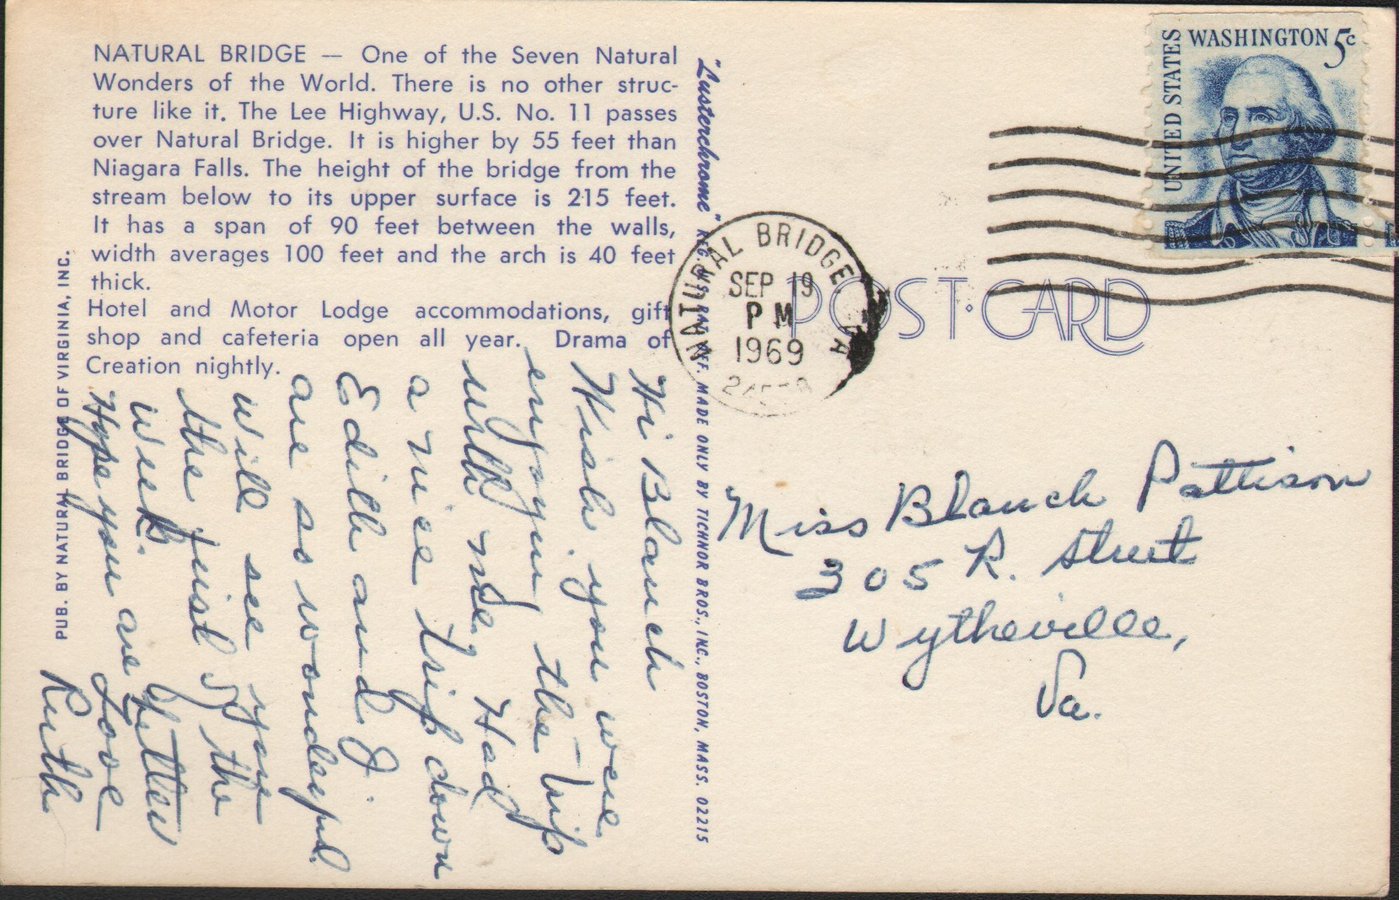 NATURAL BRIDGE — One of the Seven Natural
Wonders of the World. There is no other struc-
ture like it. The Lee Highway, U.S. No. 11 passes
over Natural Bridge. It is higher by 55 feet than
Niagara Falls. The height of the bridge from the
stream below to its upper surface is 215 feet.
It has a span of 90 feet between the walls,
width averages 100 feet and the arch is 40 feet
thick.
Hotel and Motor Lodge accommodations, gift
shop and cafeteria open all year. Drama of
Creation nightly.
PUB. BY NATURAL BRIDGE OF VIRGINIA, INC.
Hi Blanch
Wish you were
enjoying the trip
with me. Had
a nice trip down
Edith and I.
are so wonderful.
will see you
the first of the
week.
Hope you are better
Love
Ruth
"Lusterchrome" REG. U.S. PAT. OFF. MADE ONLY BY TICHNOR BROS., INC., BOSTON, MASS. 02215
NATURAL BRIDGE VA
SEP 19
PM
1969
POST CARD
UNITED STATES
WASHINGTON 5c
Miss Blanch Pattison
305 R. Street
Wytheville,
Va.